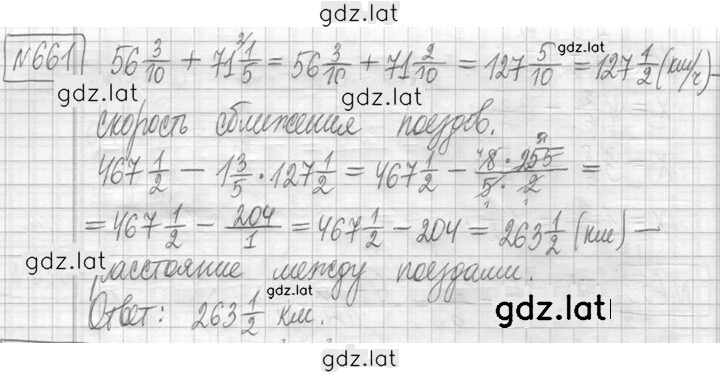 gdz.lat
№661 56 3/10 + 71 1/5 = 56 3/10 + 71 2/10 = 127 5/10 = 127 1/2 (км/ч) –
gdz.lat
gdz.lat
gdz.lat
скорость сближения поездов.
467 1/2 − 1 3/5 · 127 1/2 = 467 1/2 − 8 · 255/5 · 2 =
= 467 1/2 − 204/1 = 467 1/2 − 204 = 263 1/2 (км) –
gdz.lat
расстояние между поездами.
gdz.lat
Ответ: 263 1/2 км.
gdz.lat
gdz.lat